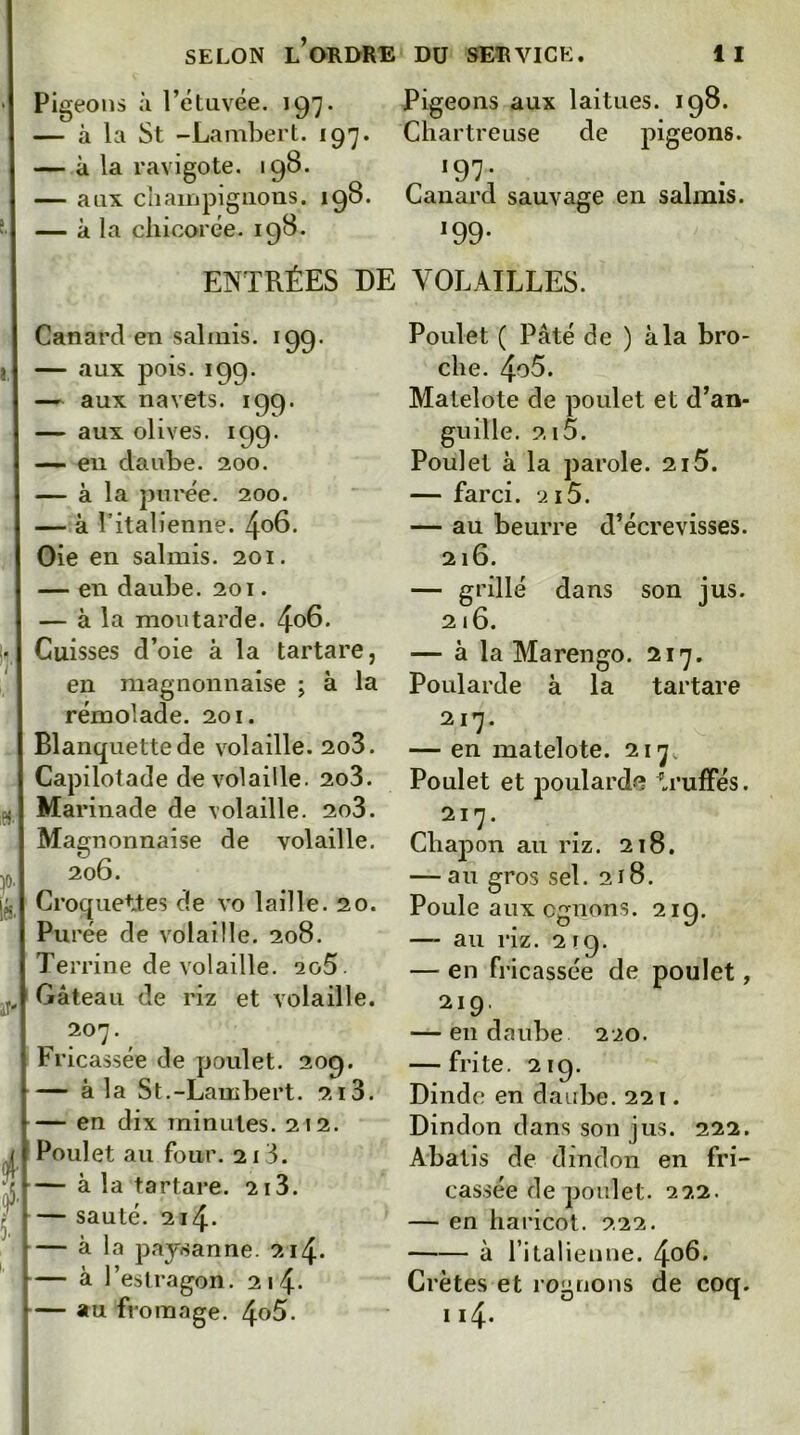 SELON L'ORDRE DU SERVICE. 11
Pigeons à l'étuvée. 197.
— à la St -Lambert. 197.
— à la ravigote. 198.
— aux champignons. 198.
— à la chicorée. 198.
Pigeons aux laitues. 198.
Chartreuse de pigeons.
197.
Canard sauvage en salmis.
199.
ENTRÉES DE VOLAILLES.
Canard en salmis. 199.
— aux pois. 199.
— aux navets. 199.
— aux olives. 199.
— en daube. 200.
— à la purée. 200.
— à l'italienne. 406.
Oie en salmis. 201.
— en daube. 201.
— à la moutarde. 406.
Cuisses d'oie à la tartare,
en magnonnaise ; à la
rémolade. 201.
Blanquette de volaille. 203.
Capilotade de volaille. 203.
Marinade de volaille. 203.
Magnonnaise de volaille.
206.
Croquettes de vo laille. 20.
Purée de volaille. 208.
Terrine de volaille. 205.
Gâteau de riz et volaille.
207.
Fricassée de poulet. 209.
— à la St.-Lambert. 213.
— en dix minutes. 212.
Poulet au four. 213.
— à la tartare. 213.
— sauté. 214.
— à la paysanne. 214.
— à l'estragon. 214.
— au fromage. 405.
Poulet ( Pâté de ) à la bro-
che. 405.
Matelote de poulet et d'an-
guille. 215.
Poulet à la parole. 215.
— farci. 215.
— au beurre d'écrevisses.
216.
— grillé dans son jus.
216.
— à la Marengo. 217.
Poularde à la tartare
217.
— en matelote. 217.
Poulet et poularde truffés.
217.
Chapon au riz. 218.
— au gros sel. 218.
Poule aux ognons. 219.
— au riz. 219.
— en fricassée de poulet,
219.
— en daube 220.
— frite. 219.
Dinde en daube. 221.
Dindon dans son jus. 222.
Abatis de dindon en fri-
cassée de poulet. 222.
— en haricot. 222.
—— à l'italienne. 406.
Crètes et rognons de coq.
114.